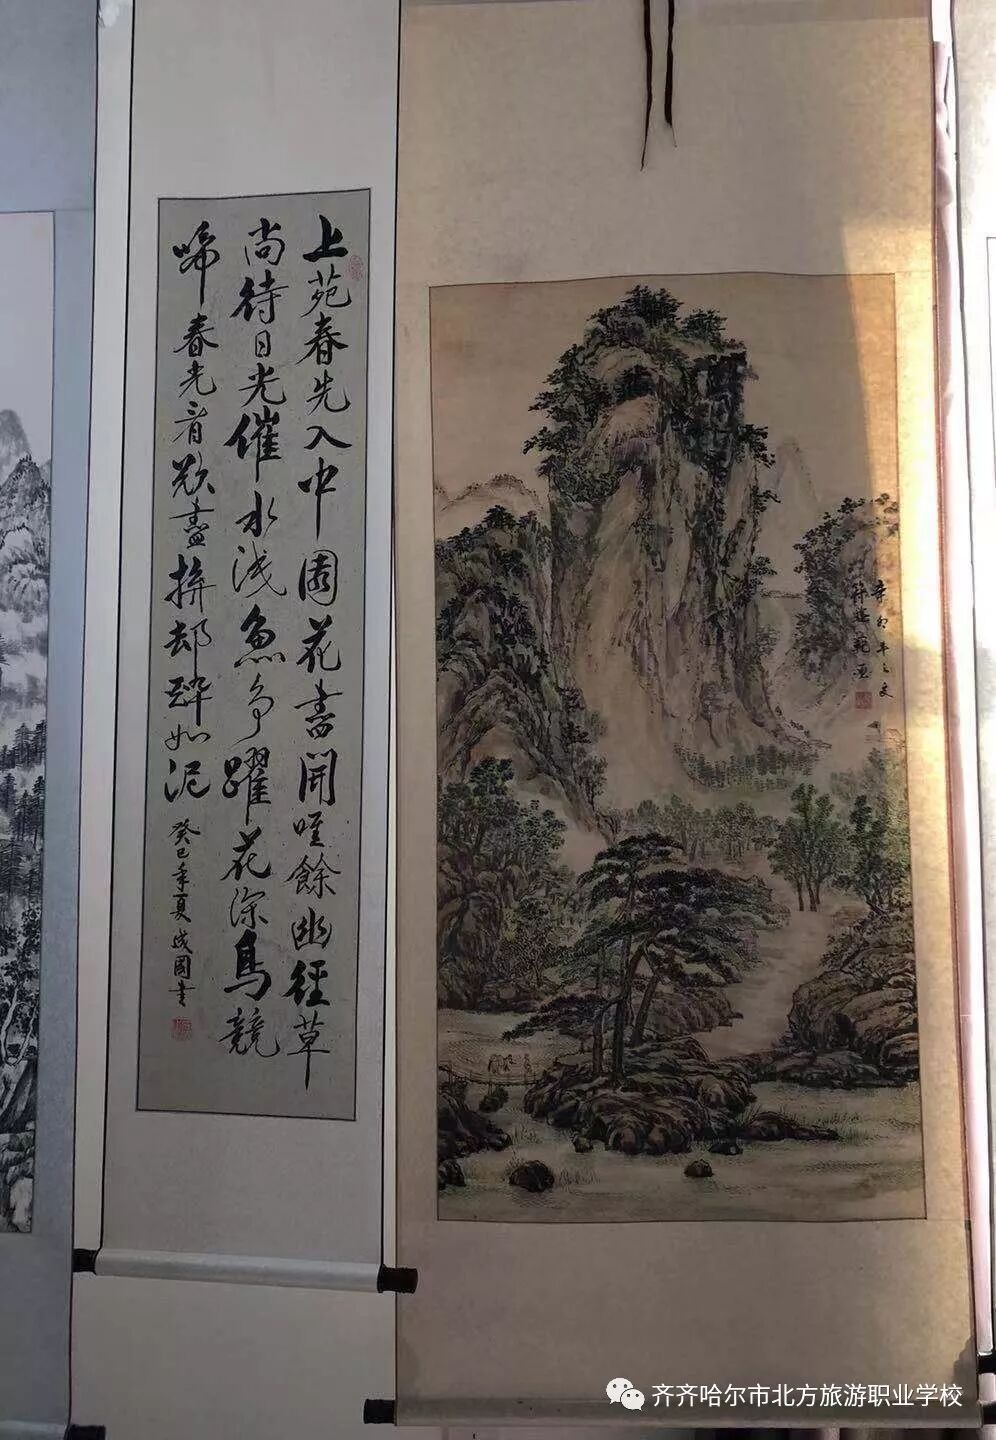 上苑春先入中園花盡開唯餘幽徑草
尚待日光催水浅魚争躍花深鳥競
啼春光看欲盡拚却酔如泥
癸巳年夏成国書
辛卯年之夏
齐齐哈尔市北方旅游职业学校